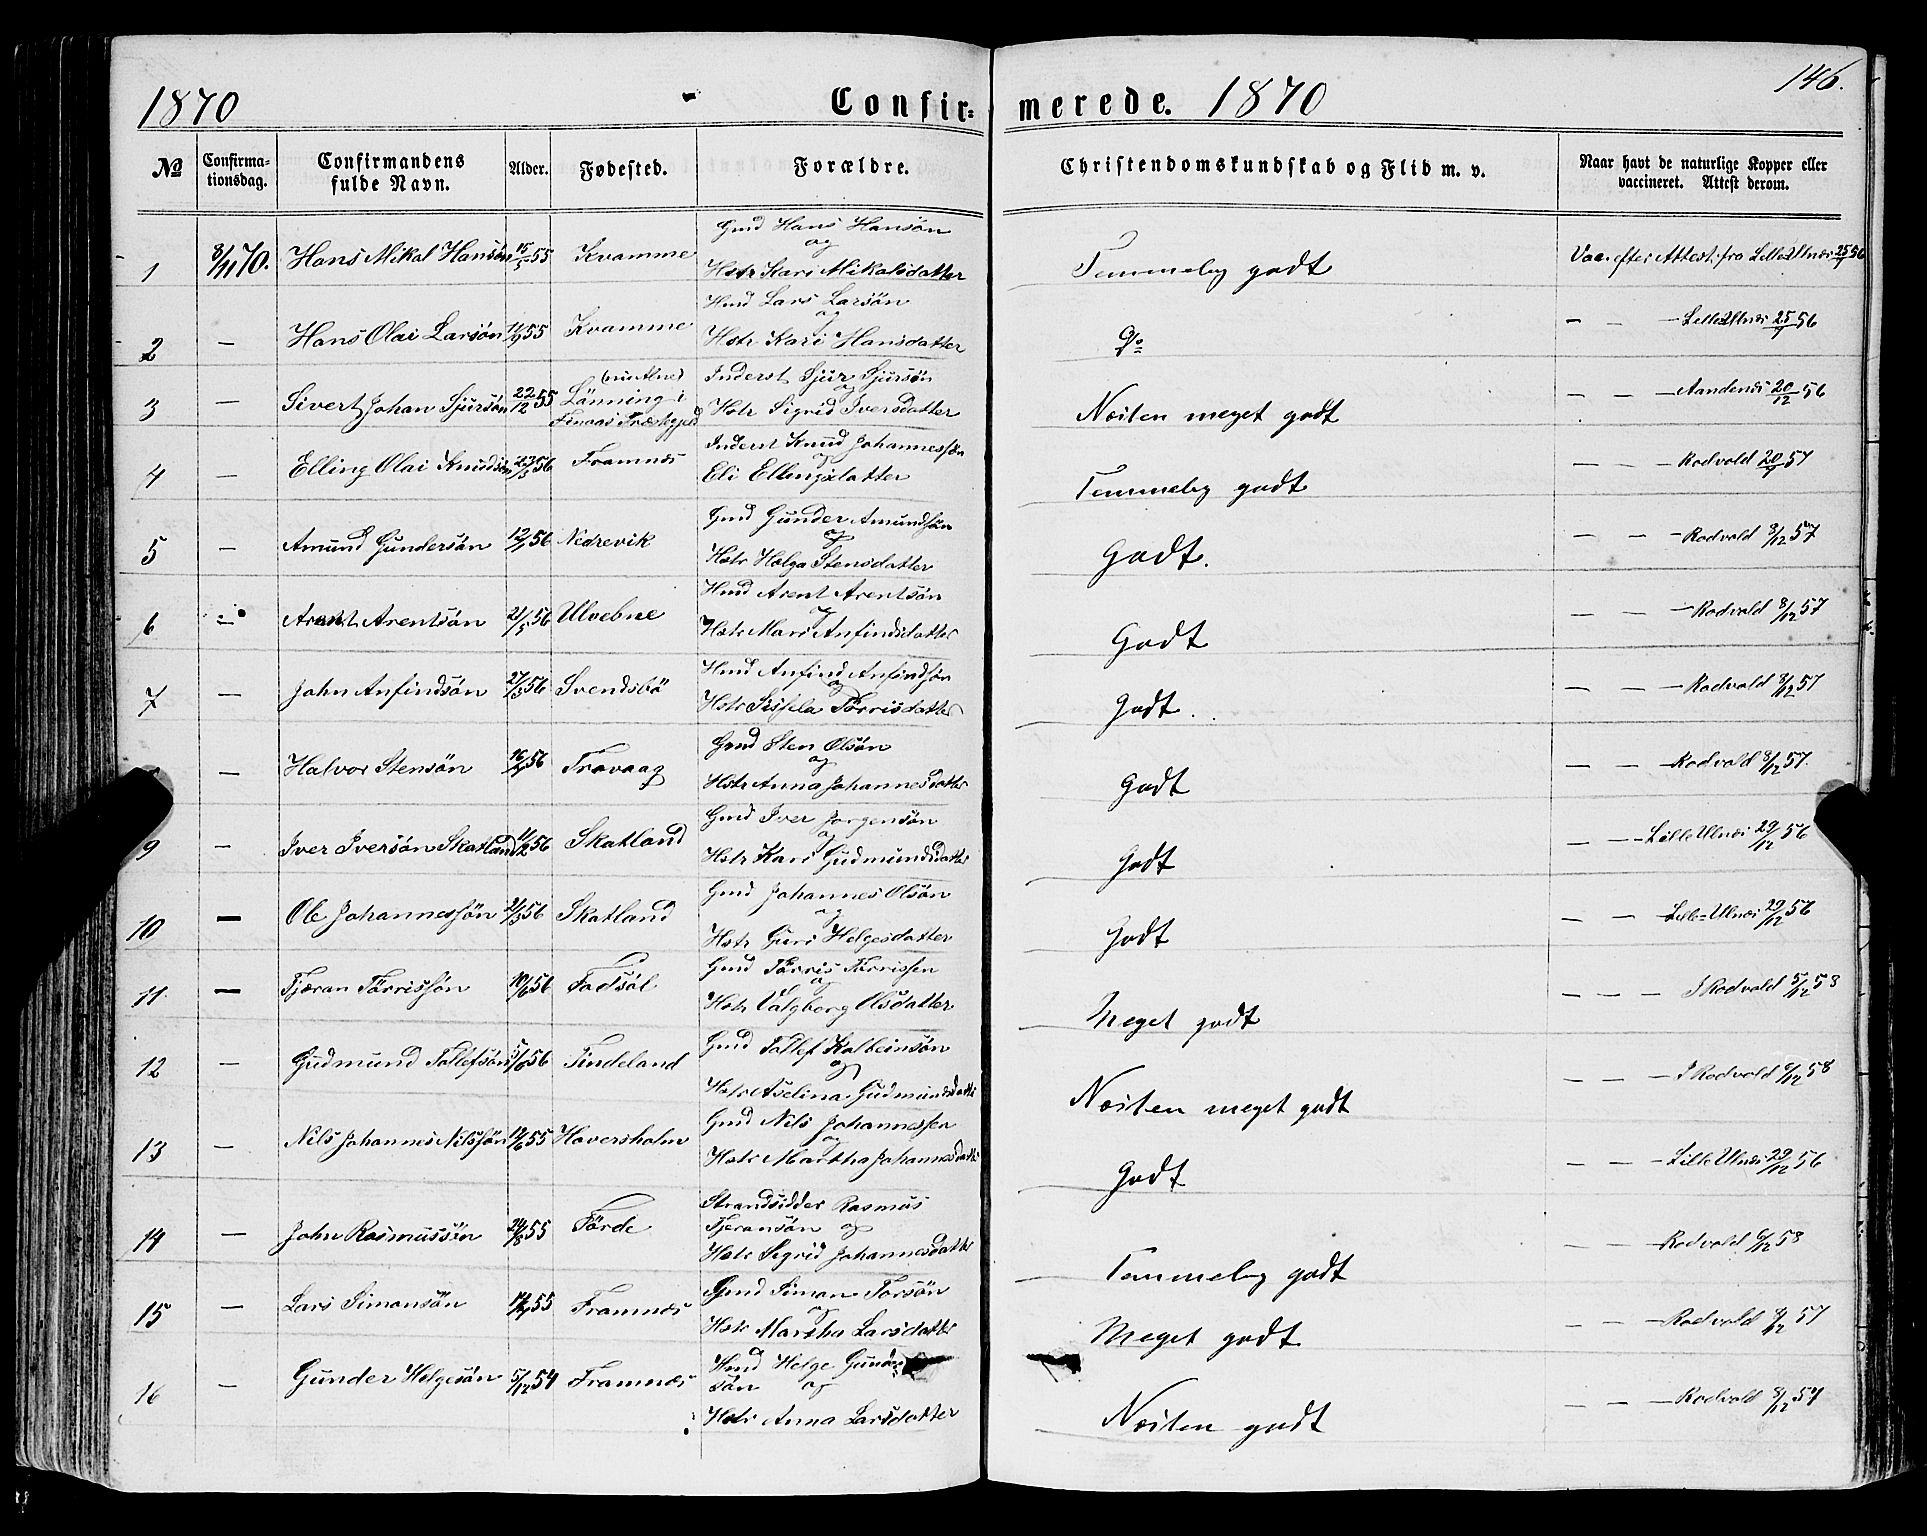 146.
1870 Confir= merede. 1870
No Confirma-tionsdag. Confirmandens fulde Navn. Alder. Fødested. Forældre. Christendomskundskab og Flid m. v. Naar havt de naturlige Kopper eller vaccineret. Attest derom.
Gmd Hans Hansön
og
1 8/11 70. Hans Mikal Hansön 15/5 55 Kvamme Hstr Kari Mikalsdatter Temmelig godt Vac. efter Attest fra Lille Ulnæs 25/9 56
Hmd Lars Larsön
og
2 — Hans Olai Larsön 55 Kvamme Hstr Kari Hansdatter Do — — — Lille Ulnæs 25/9 56
Inderst Sjur Sjursön
og
3 — Sivert Johan Sjursön 22/12 55 Lönning i Finaas Hstr Sigrid Iversdatter Næsten meget godt — — Aandenæs 20/12 56
Inderst Knud Johannessön
og
4 — Elling Olai Knudsön 27/5 56 Framnæs Eli Ellingsdatter Temmelig godt — — — Rodvold 20/9 57
Gmd Gunder Amundsön
og
5 — Amund Gundersön 12/1 56 Nedrevik Hstr Helga Stensdatter Godt. — — — Rodvold 8/12 57
Hmd Arent Arentsön
og
6 — Arent Arentsön 21/5 56 Ulvebne Hstr Mari Anfindsdatter Godt — — — Rodvold 8/12 57
Hmd Anfind Anfindsön
og
7 — John Anfindsön 27/3 56 Svendsbö Hstr Sissela Törrisdatter Godt. — — — Rodvold 8/12 57
Gmd Sten Olsön
og
— Halvor Stensön 56 Trovaag Hstr Anna Johannesdatter Godt — — — Rodvold 8/12 57.
Gmd Iver Jorgensön
og
9 — Iver Iversön Skatland 11/2 56 Skatland Hstr Kari Gudmundsdatter Godt — — — Lille Ulnæs 29/12 56
Gmd Johannes Olsön
og
10 — Ole Johannessön 21/3 56 Skatland Hstr Guri Helgesdatter Godt — — Lille=Ulnæs 29/12 56
Gmd Törris Törrissen
og
11. — Tjæran Törrissön 10/6 56 Todsöl Hstr Valgborg Olsdatter Meget godt — — — Rodvold 5/12 58
Gmd Tollef Kolbeinsön
og
12 — Gudmund Tollefsön 56 Tindeland Hstr Aselina Gudmundsdatt Næsten meget godt — — — Rodvold 6/12 58
Gmd Nils Johannessen
og
13 — Nils Johannes Nilssön 55 Haversholm Hstr Martha Johannesdatt Godt — — — Lille Ulnæs 29/12 56
Strandsidder Rasmus
Tjeransön og
14 — John Rasmussön 24/8 55 Förde Hstr Sigrid Johannesdatter Temmelig godt — — — Rodvold 6/12 58
Gmd Simon Torsön
og
15 — Lars Simonsön 55 Framnæs Hstr Martha Larsdatter Meget godt — — — Rodvold 8/12 57
Hmd Helge Gunder=
sön og
16 — Gunder Helgesön 5/12 54 Framnæs Hstr Anna Larsdatter Næsten godt — — — Rodvold 8/12 57